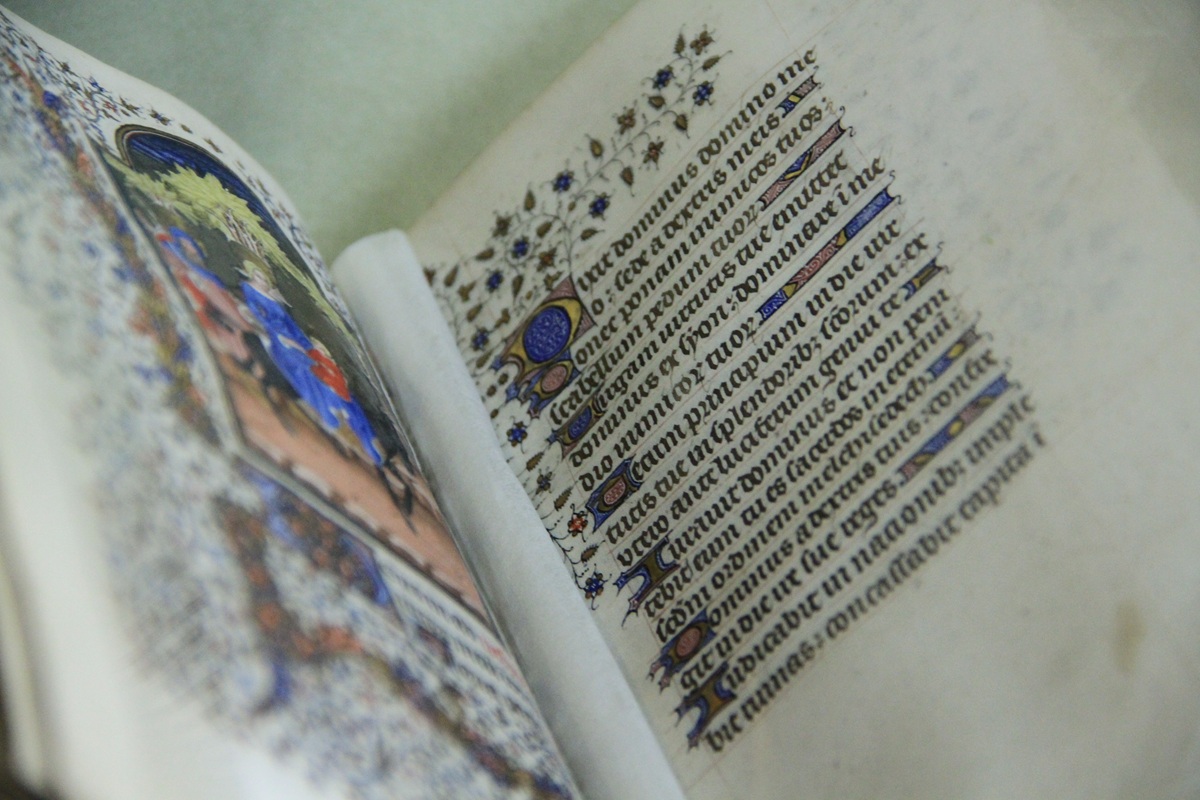 Dixit dominus domino me
o: sede a dextris meis
Donec ponam inimicos tuos:
scabellum pedum tuoꝝ
Virgam uirtutis tue emittet
dominus ex syon: dominare i me
dio inimicoꝝ tuoꝝ
Tecum principium in die uir
tutis tue in splendorib; scōrum: ex
utero ante luciferum genui te
Iurauit dominus et non peni
tebit eum tu es sacerdos in eternū
scdm ordinem melchisedech
Dominus a dextris tuis: confre
git in die ire sue reges
Iudicabit in nacionib; imple
bit ruinas: concassabit capita i